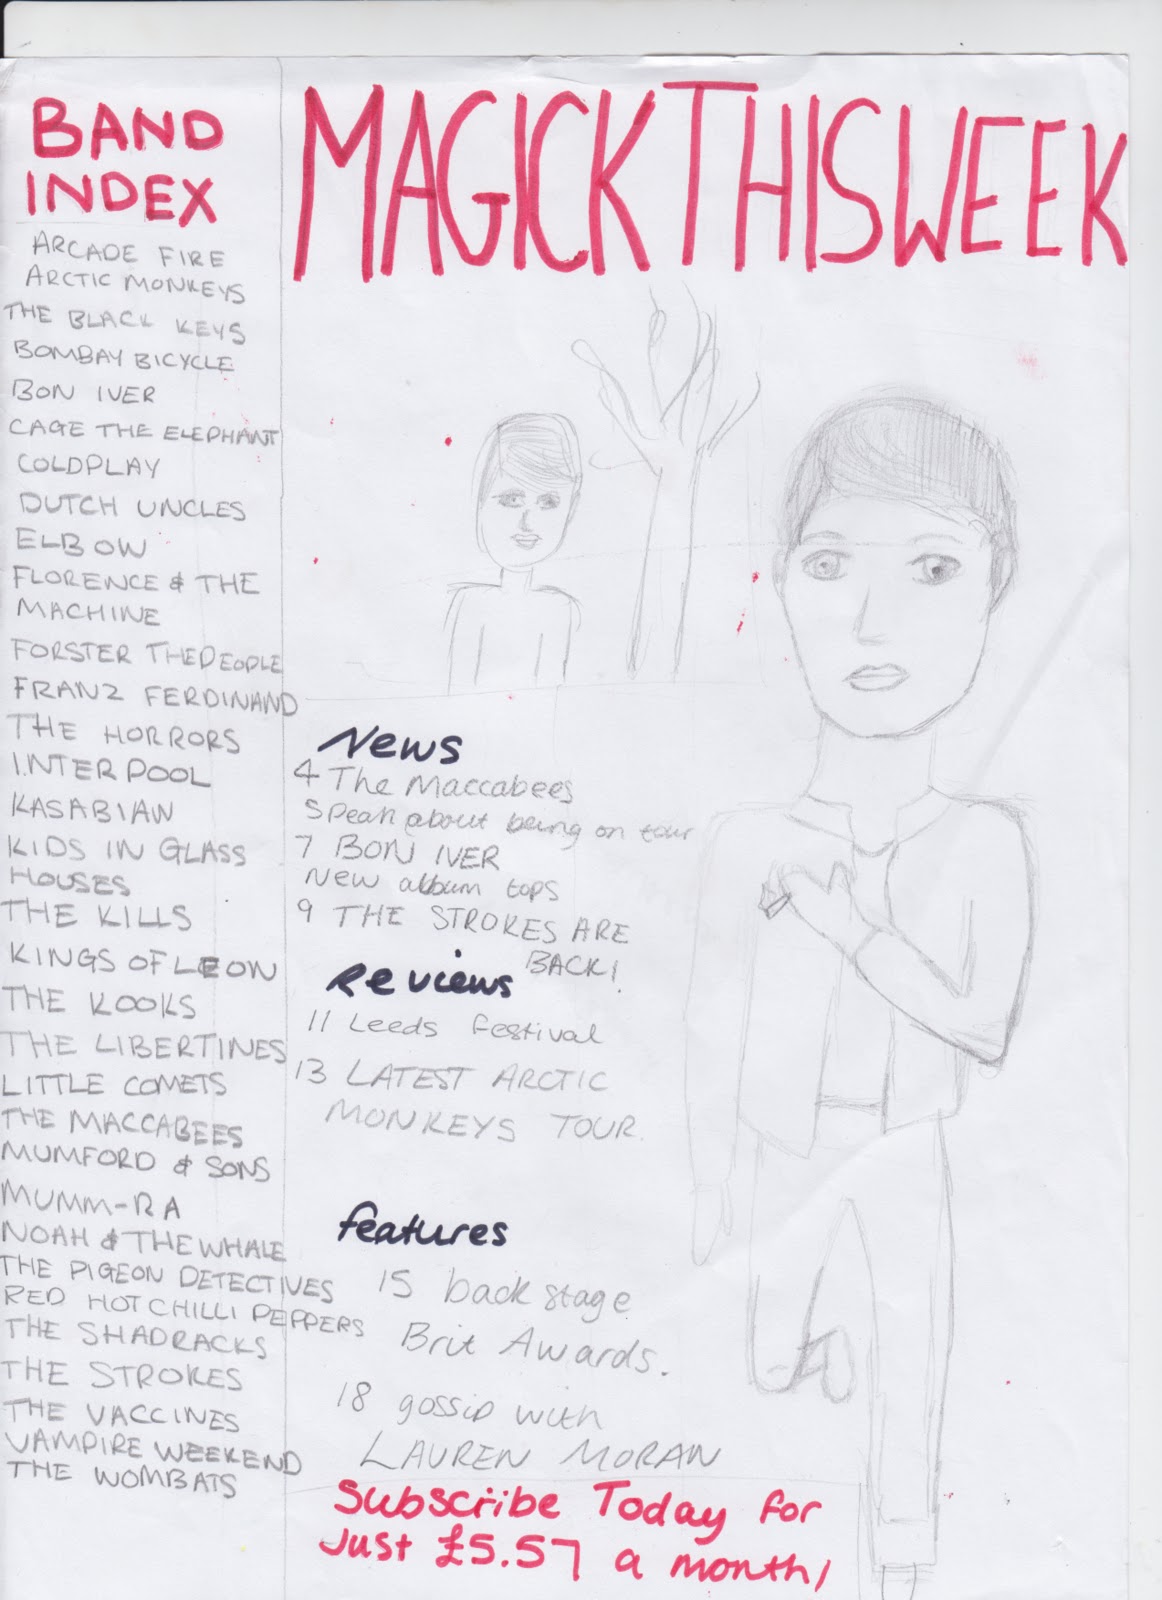 BAND
INDEX
ARCADE FIRE
ARCTIC MONKEYS
THE BLACK KEYS
BOMBAY BICYCLE
BON IVER
CAGE THE ELEPHANT
COLDPLAY
DUTCH UNCLES
ELBOW
FLORENCE & THE
MACHINE
FORSTER THEPEOPLE
FRANZ FERDINAND
THE HORRORS
INTERPOOL
KASABIAN
KIDS IN GLASS
HOUSES
THE KILLS
KINGS OF LEON
THE KOOKS
THE LIBERTINES
LITTLE COMETS
THE MACCABEES
MUMFORD & SONS
MUMM-RA
NOAH & THE WHALE
THE PIGEON DETECTIVES
RED HOT CHILLI PEPPERS
THE SHADRACKS
THE STROKES
THE VACCINES
VAMPIRE WEEKEND
THE WOMBATS
MAGICKTHISWEEK
News
4 The Maccabees
Speak about being on tour
7 BON IVER
New album tops
9 THE STROKES ARE
BACK!
Reviews
11 Leeds festival
13 LATEST ARCTIC
MONKEYS TOUR.
features
15 back stage
Brit Awards.
18 gossip with
LAUREN MORAN
Subscribe Today for
Just £5.57 a month!